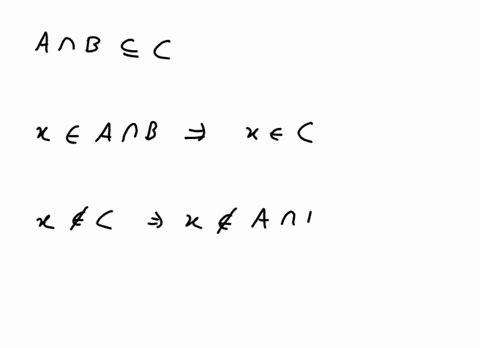 A ∩ B ⊆ C
x ∈ A ∩ B ⇒ x ∈ C
x ∉ C ⇒ x ∉ A ∩